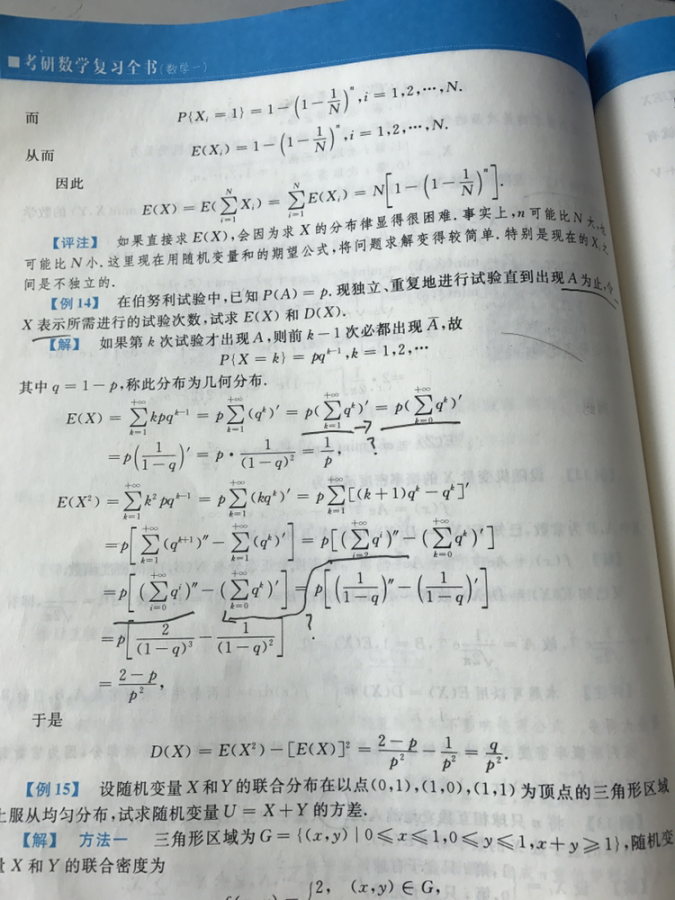 ■考研数学复习全书(数学一)
而 P{X_i = 1} = 1 - (1 - 1/N)^n, i = 1,2,…,N.
从而 E(X_i) = 1 - (1 - 1/N)^n, i = 1,2,…,N.
因此
E(X) = E(∑_{i=1}^{N} X_i) = ∑_{i=1}^{N} E(X_i) = N[1 - (1 - 1/N)^n].
【评注】 如果直接求 E(X),会因为求 X 的分布律显得很困难. 事实上, n 可能比 N 大,也
可能比 N 小. 这里现在用随机变量和的期望公式,将问题求解变得较简单. 特别是现在的 X_i 之
间是不独立的.
【例 14】 在伯努利试验中,已知 P(A) = p. 现独立、重复地进行试验直到出现 A 为止,令
X 表示所需进行的试验次数,试求 E(X) 和 D(X).
【解】 如果第 k 次试验才出现 A,则前 k-1 次必都出现 A̅,故
P{X = k} = pq^{k-1}, k = 1,2,…
其中 q = 1 - p,称此分布为几何分布.
E(X) = ∑_{k=1}^{+∞} kpq^{k-1} = p∑_{k=1}^{+∞} (q^k)' = p(∑_{k=1}^{+∞} q^k)' = p(∑_{k=0}^{+∞} q^k)'
= p(1/(1-q))' = p · 1/(1-q)^2 = 1/p, ?
E(X^2) = ∑_{k=1}^{+∞} k^2 pq^{k-1} = p∑_{k=1}^{+∞} (kq^k)' = p∑_{k=1}^{+∞} [(k+1)q^k - q^k]'
= p[∑_{k=1}^{+∞} (q^{k+1})'' - ∑_{k=1}^{+∞} (q^k)'] = p[(∑_{i=2}^{+∞} q^i)'' - (∑_{k=0}^{+∞} q^k)']
= p[(∑_{i=0}^{+∞} q^i)'' - (∑_{k=0}^{+∞} q^k)'] = p[(1/(1-q))'' - (1/(1-q))']
= p[2/(1-q)^3 - 1/(1-q)^2] ?
= (2-p)/p^2,
于是
D(X) = E(X^2) - [E(X)]^2 = (2-p)/p^2 - 1/p^2 = q/p^2.
【例 15】 设随机变量 X 和 Y 的联合分布在以点(0,1),(1,0),(1,1)为顶点的三角形区域
上服从均匀分布,试求随机变量 U = X+Y 的方差.
【解】 方法一 三角形区域为 G = {(x,y) | 0≤x≤1,0≤y≤1,x+y≥1},随机变
量 X 和 Y 的联合密度为
2, (x,y) ∈ G,